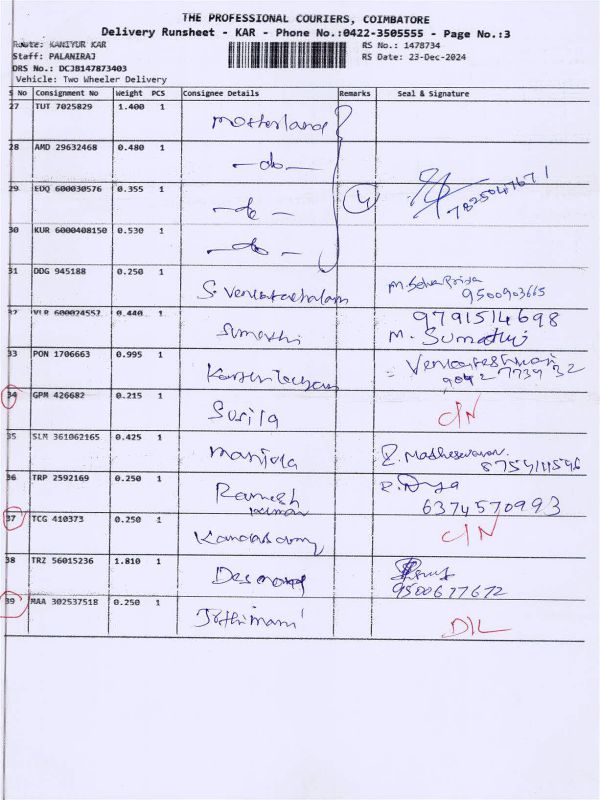 THE PROFESSIONAL COURIERS, COIMBATORE
Delivery Runsheet - KAR - Phone No.:0422-3505555 - Page No.:3
Route: KANIYUR KAR
RS No.: 1478734
Staff: PALANIRAJ
RS Date: 23-Dec-2024
DRS No.: DCJB147873403
Vehicle: Two Wheeler Delivery
S No Consignment No Weight PCS Consignee Details Remarks Seal & Signature
27 TUT 7025829 1.400 1 Motherland
28 AMD 29632468 0.480 1 -do-
29 EDQ 600030576 0.355 1 -do- 4 7825047671
30 KUR 6000408150 0.530 1 -do-
31 DDG 945188 0.250 1 S. Venkatachalam M. Selva Priya
9500903665
32 VLR 600024557 0.440 1 Sumathi 9791514698
M. Sumathi
33 PON 1706663 0.995 1 Venkateshwari
9042 7739 32
34 GPM 426682 0.215 1 Susila C/N
35 SLM 361062165 0.425 1 Manjula R. Matheswaran
36 TRP 2592169 0.250 1 Ramesh R. Divya
Kumar 6374570993
37 TCG 410373 0.250 1 Kandasamy C/N
38 TRZ 56015236 1.810 1
9500677672
39 MAA 302537518 0.250 1 Jothimani D/L